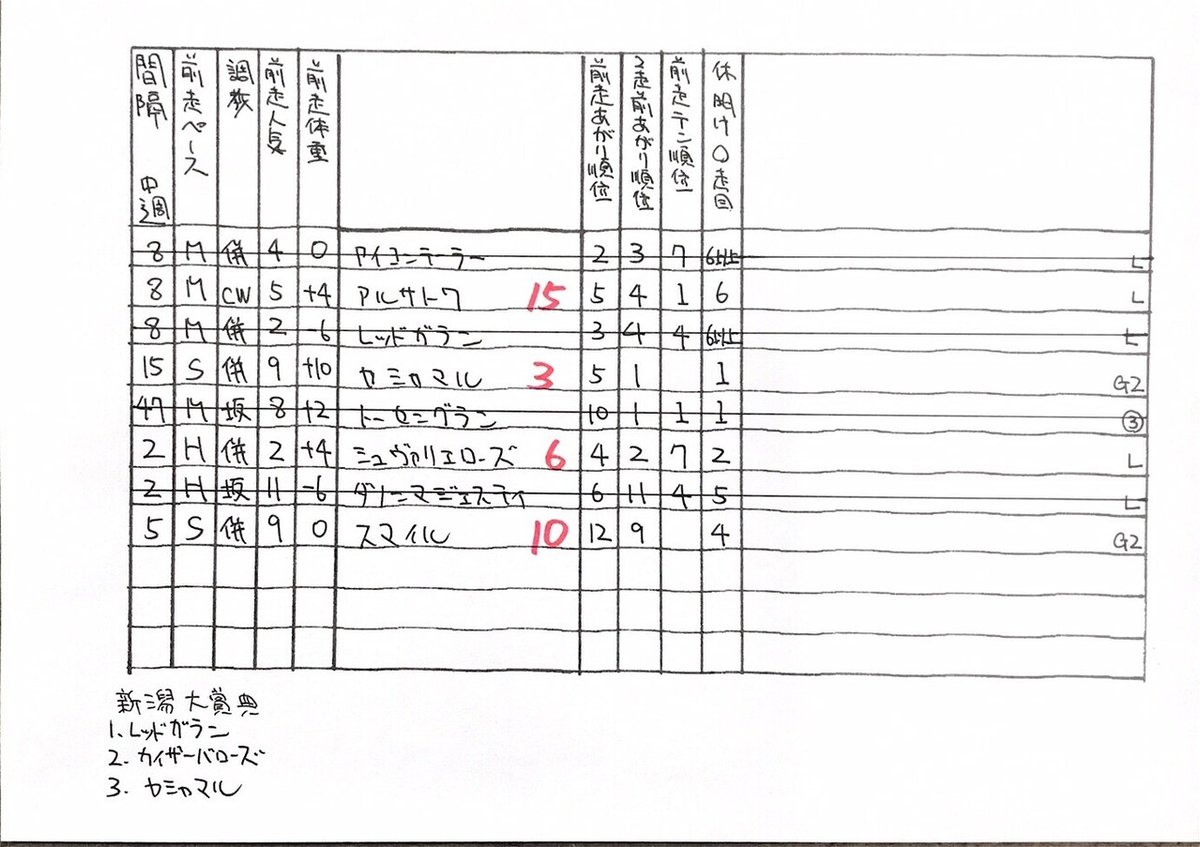 間隔 中週 前走ペース 調教 前走人気 前走体重 前走あがり順位 2走前あがり順位 前走テン順位 休明け〇走目
8 M 併 4 0 アイコンテーラー 2 3 7 6以上 L
8 M CW 5 +4 アルサトワ 15 5 4 1 6 L
8 M 併 2 -6 レッドガラン 3 4 4 6以上 L
15 S 併 9 +10 ヤシャマル 3 5 1 1 G2
47 M 坂 8 +2 トーセングラン 10 1 1 1 ③
2 H 併 2 +4 シュヴァリエローズ 6 4 2 7 2 L
2 H 坂 11 -6 ダノンマジェスティ 6 11 4 5 L
5 S 併 9 0 スマイル 10 12 9 4 G2
新潟大賞典
1. レッドガラン
2. カイザーバローズ
3. ヤシャマル